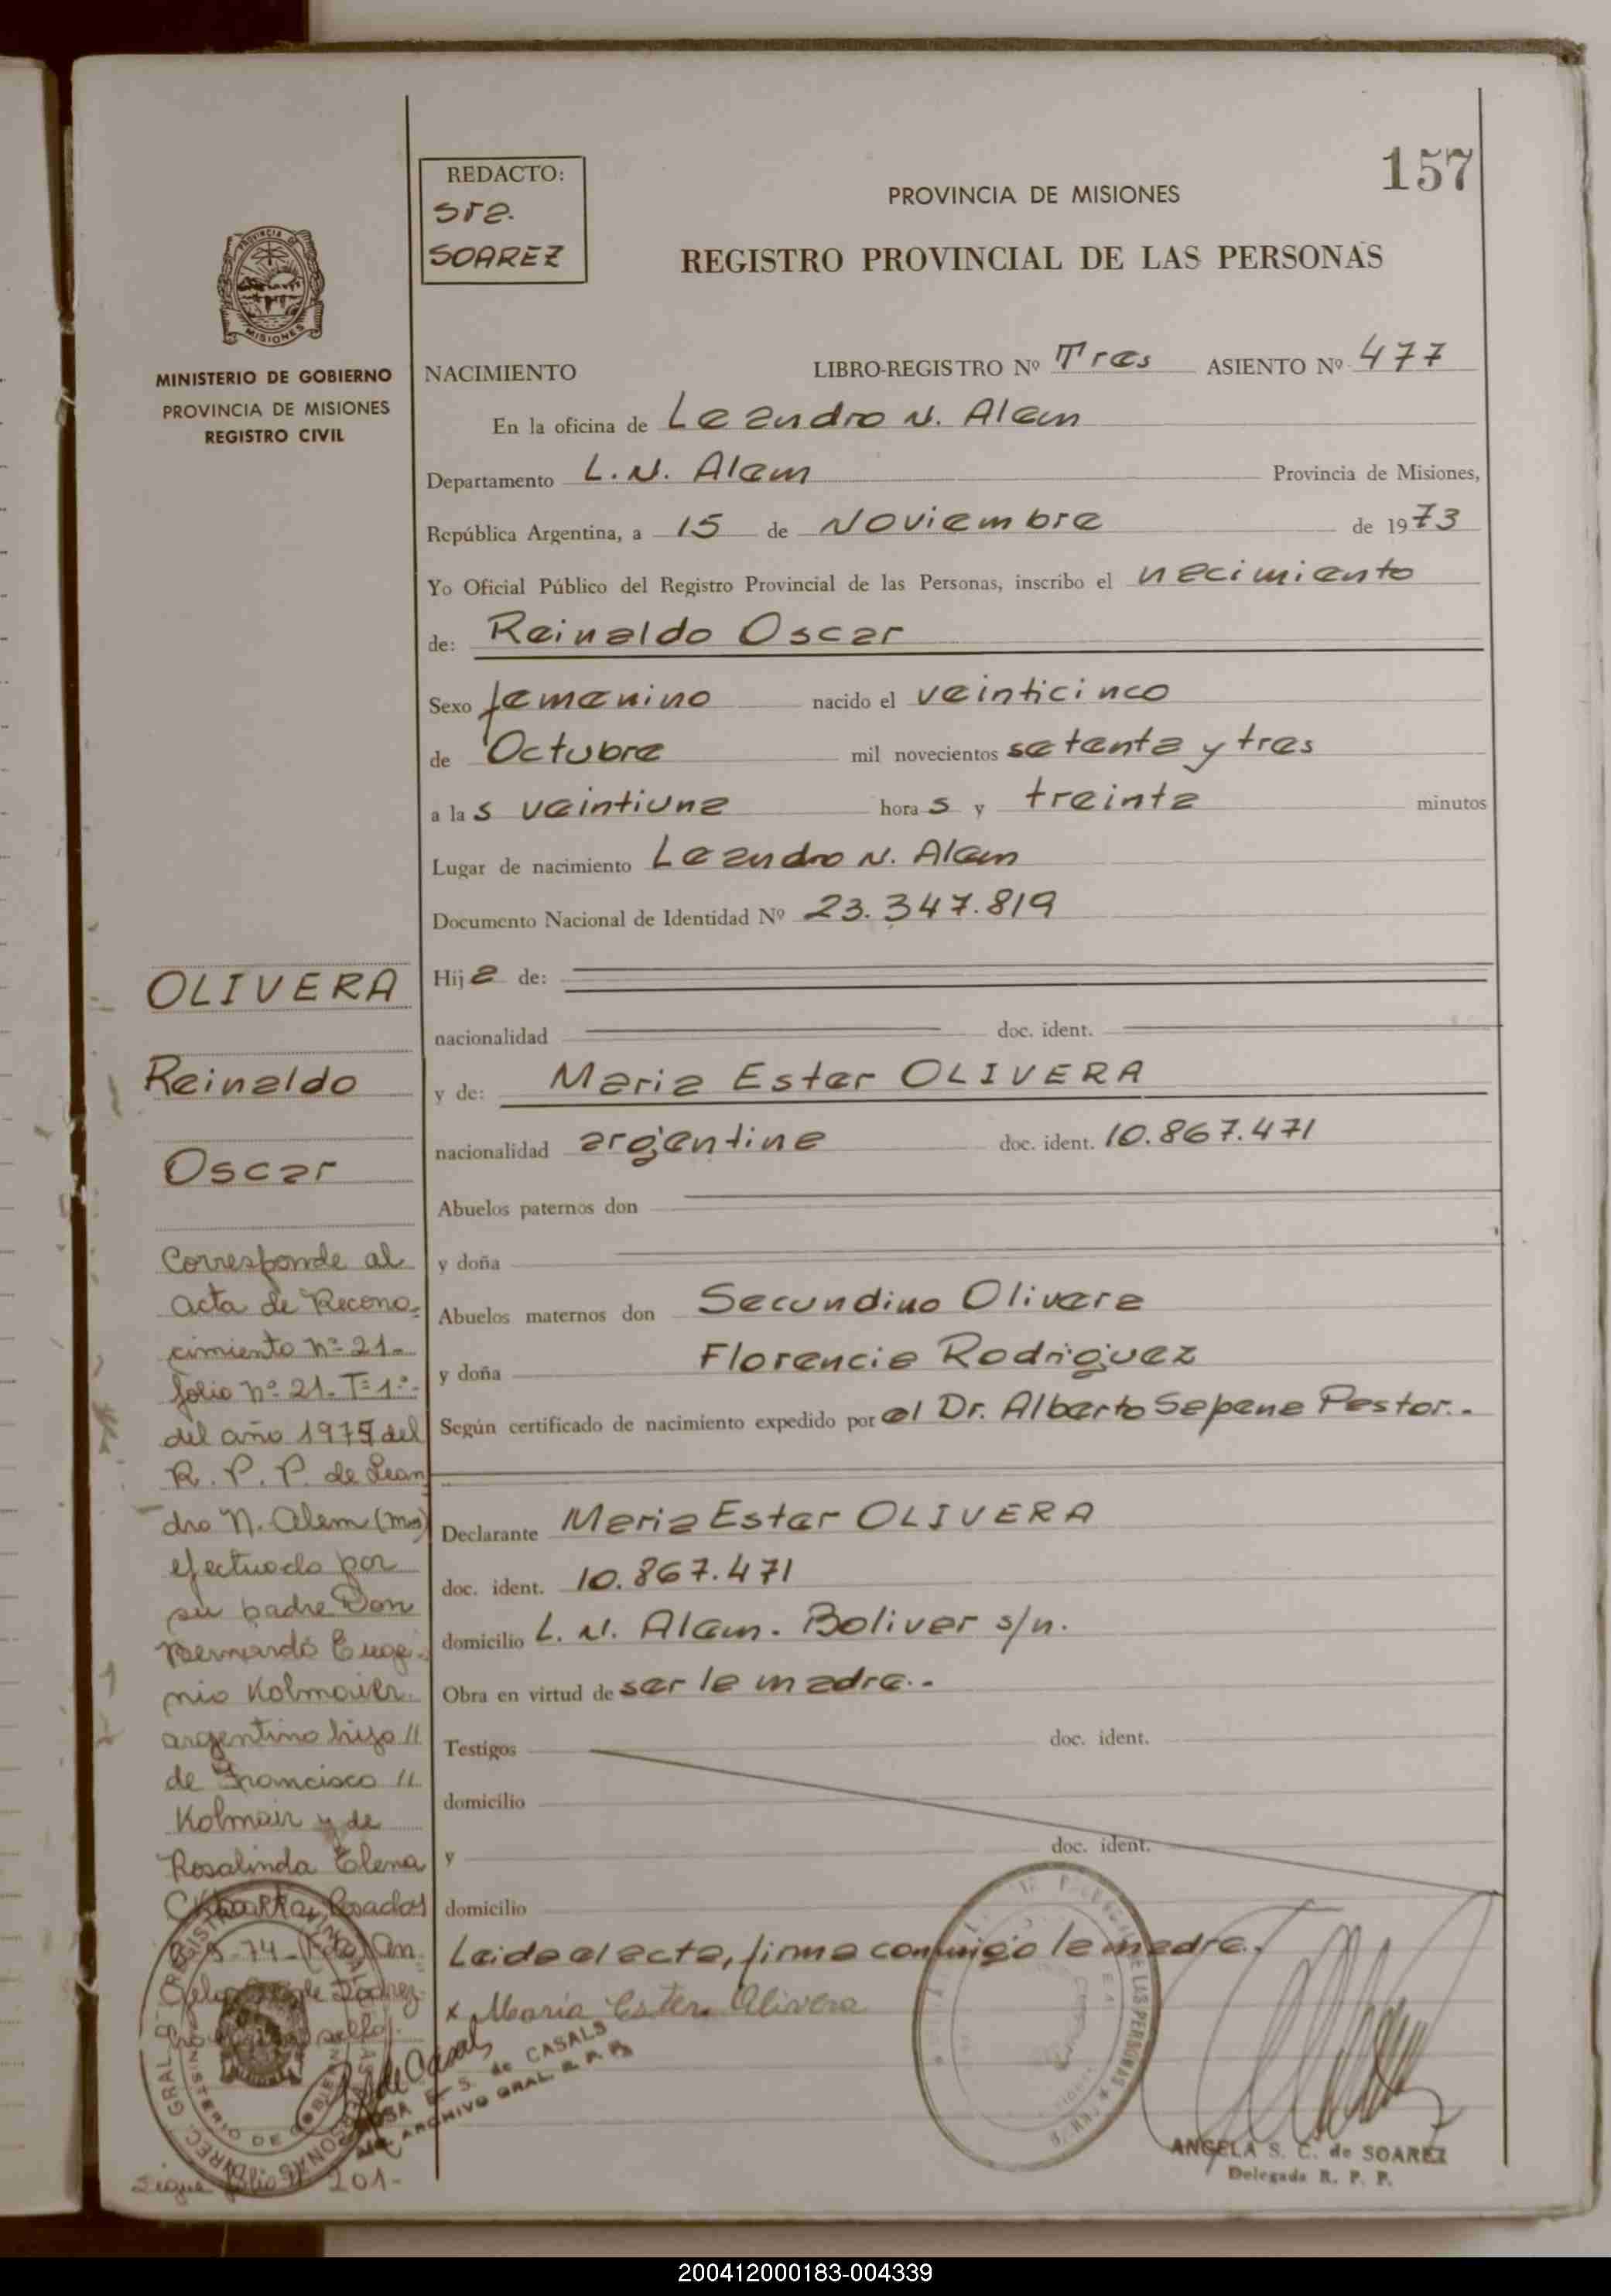 157
REDACTO:
Sra.
SOAREZ
PROVINCIA DE MISIONES
REGISTRO PROVINCIAL DE LAS PERSONAS
MISIONES
MINISTERIO DE GOBIERNO
PROVINCIA DE MISIONES
REGISTRO CIVIL
NACIMIENTO LIBRO-REGISTRO Nº Tres ASIENTO Nº 477
En la oficina de Leandro N. Alem
Departamento L.N. Alem Provincia de Misiones,
República Argentina, a 15 de Noviembre de 1973
Yo Oficial Público del Registro Provincial de las Personas, inscribo el nacimiento
de: Reinaldo Oscar
Sexo femenino nacido el veinticinco
de Octubre mil novecientos setenta y tres
a las veintiuna horas y treinta minutos
Lugar de nacimiento Leandro N. Alem
Documento Nacional de Identidad Nº 23.347.819
Hija de:
nacionalidad doc. ident.
y de: Maria Ester OLIVERA
nacionalidad argentina doc. ident. 10.867.471
Abuelos paternos don
y doña
Abuelos maternos don Secundino Olivera
y doña Florencia Rodriguez
Según certificado de nacimiento expedido por el Dr. Alberto Sepane Pastor.-
Declarante Maria Ester OLIVERA
doc. ident. 10.867.471
domicilio L. N. Alem. Bolivar s/n.
Obra en virtud de ser la madre.-
Testigos doc. ident.
domicilio
y doc. ident.
domicilio
Leida el acta, firma conmigo la madre.
x Maria Ester Olivera
ANGELA S. C. de SOAREZ
Delegada R. P. P.
OLIVERA
Reinaldo
Oscar
Corresponde al
acta de Recono-
cimiento nº 21-
folio nº 21. Tº 1º-
del año 1975 del
R. P. P. de Lean
dro N. Alem (Mns)
efectuado por
su padre Don
Bernardo Euge-
nio Kolmaier.
argentino hijo //
de Francisco //
Kolmair y de
Rosalinda Elena
Casados
74-
S. de CASALS
ARCHIVO GRAL. R. P. P.
Sigue folio Nº 201-
200412000183-004339